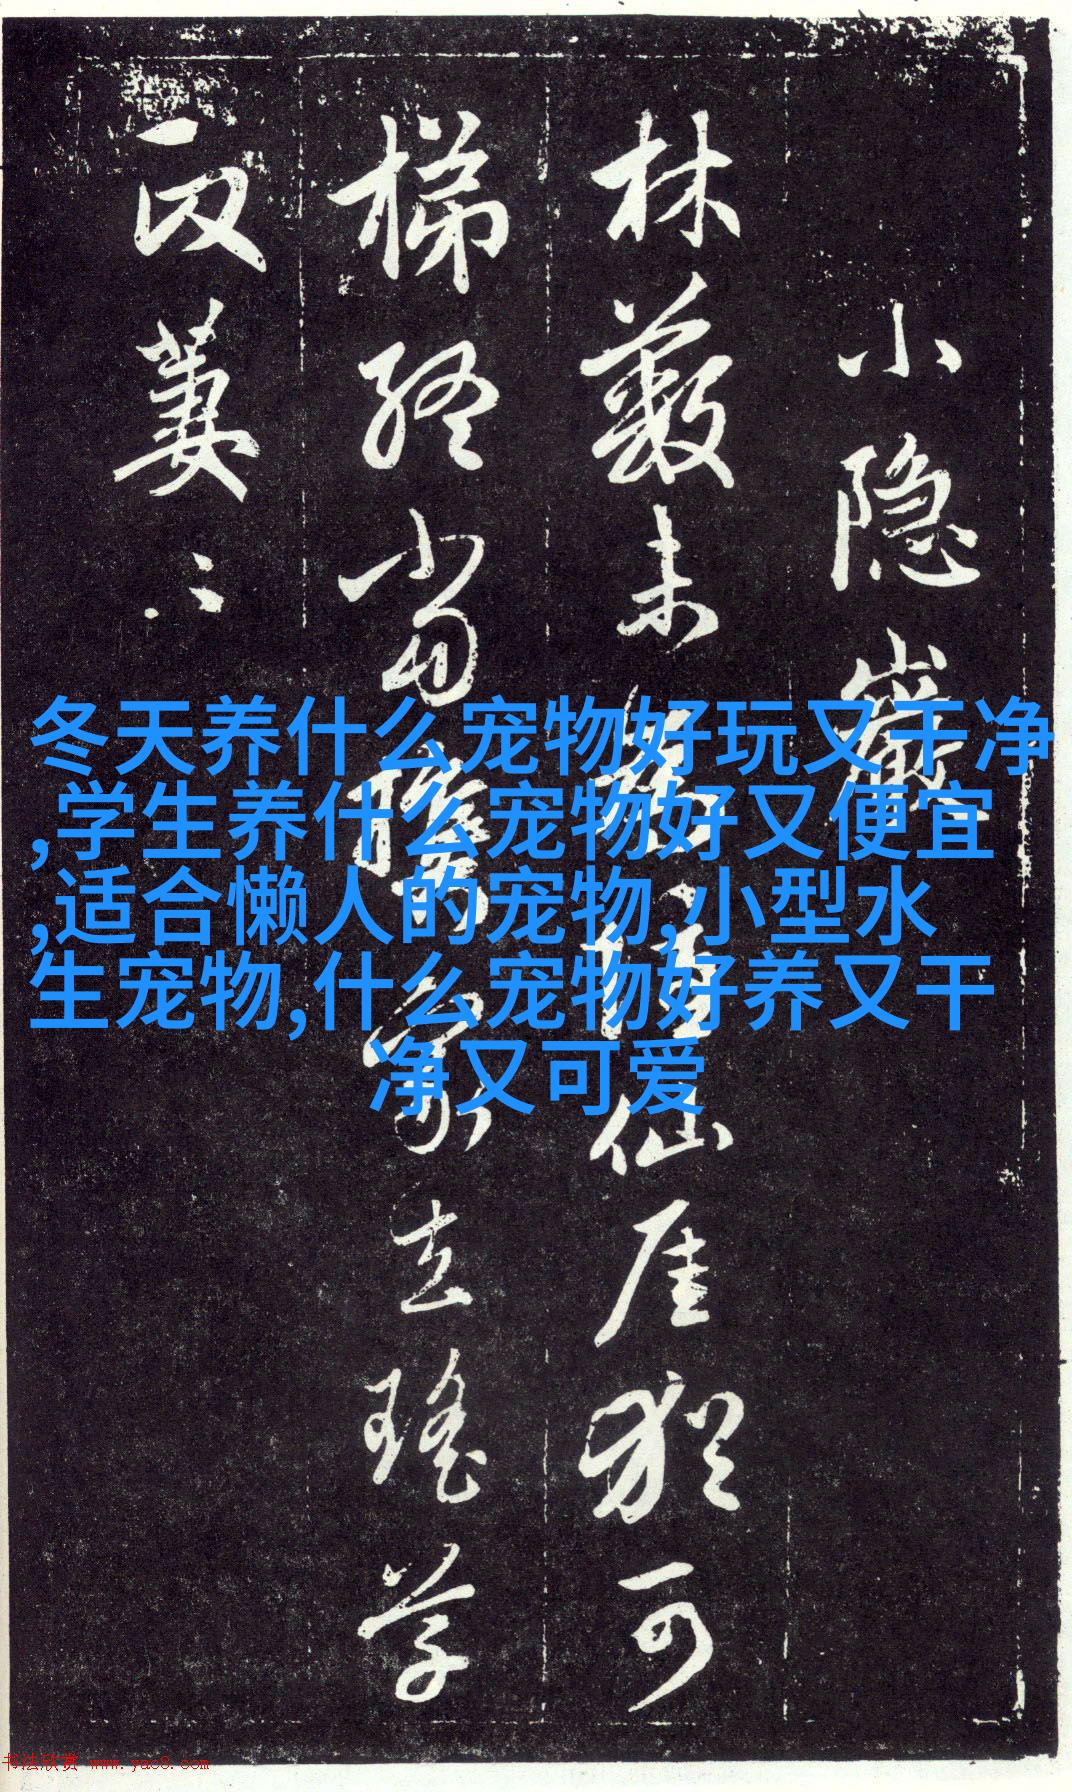 小隐巖
林薮未隐仙厓猶可
梯終當携家去瑤草
萋〻
冬天养什么宠物好玩又干净
,学生养什么宠物好又便宜
,适合懒人的宠物,小型水
生宠物,什么宠物好养又干
净又可爱
书法欣赏 www.yac8.com